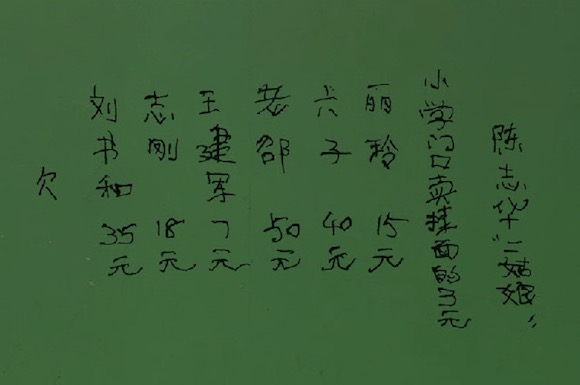 欠
刘书和 35元
志刚 18元
王建军 7元
老邵 50元
六子 40元
丽玲 15元
小学门口卖挂面的3元
陈志华"二姑